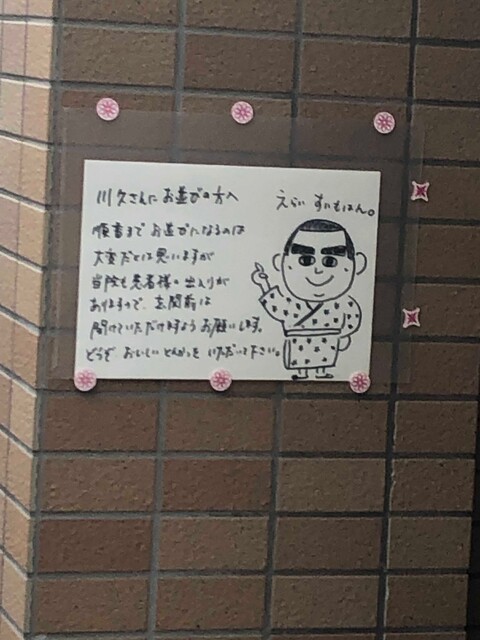 川久さんにお並びの方へ
順番までお並びになるのは
大変だとは思いますが
当院も患者様の出入りが
ありますので、玄関前は
開けていただけますようお願いします。
どうぞおいしいとんかつをいただいて下さい。
えらいすいもはん。